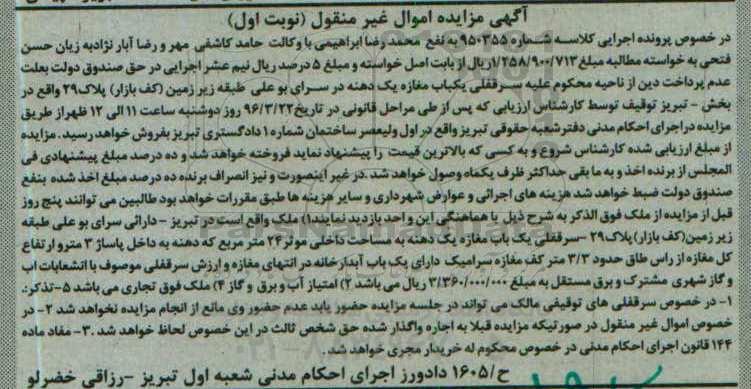 آگهی مزایده اموال غیر منقول (نوبت اول)
در خصوص پرونده اجرایی کلاسه شماره ۹۵۰۳۵۵ به نفع محمد رضا ابراهیمی با وکالت حامد کاشفی مهر و رضا آبار نژاد به زیان حسن
فتحی به خواسته مطالبه مبلغ ۱/۲۵۸/۹۰۰/۷۱۳ ریال از بابت اصل خواسته و مبلغ ۵ درصد ریال نیم عشر اجرایی در حق صندوق دولت بعلت
عدم پرداخت دین از ناحیه محکوم علیه سرقفلی یکباب مغازه یک دهنه در سرای بو علی طبقه زیر زمین (کف بازار) پلاک ۲۹ واقع در
بخش - تبریز توقیف توسط کارشناس ارزیابی که پس از طی مراحل قانونی در تاریخ ۹۶/۳/۲۲ روز دوشنبه ساعت ۱۱ الی ۱۲ ظهر از طریق
مزایده در اجرای احکام مدنی دفتر شعبه حقوقی تبریز واقع در اول ولیعصر ساختمان شماره ۱ دادگستری تبریز بفروش خواهد رسید . مزایده
از مبلغ ارزیابی شده کارشناس شروع و به کسی که بالاترین قیمت را پیشنهاد نماید فروخته خواهد شد و ده درصد مبلغ پیشنهادی فی
المجلس از برنده اخذ و به ما بقی حداکثر ظرف یکماه وصول خواهد شد . در غیر اینصورت و نیز انصراف برنده ده درصد مبلغ اخذ شده بنفع
صندوق دولت ضبط خواهد شد هزینه های اجرائی و عوارض شهرداری و سایر هزینه ها طبق مقررات خواهد بود طالبین می توانند پنج روز
قبل از مزایده از ملک فوق الذکر به شرح ذیل با هماهنگی این واحد بازدید نمایند ۱) ملک واقع است در تبریز - دارائی سرای بو علی طبقه
زیر زمین (کف بازار) پلاک ۲۹ - سرقفلی یک باب مغازه یک دهنه به مساحت داخلی موثر ۲۴ متر مربع که دهنه به داخل پاساژ ۳ متر و ارتفاع
کل مغازه از راس طاق حدود ۳/۳ متر کف مغازه سرامیک دارای یک باب آبدارخانه در انتهای مغازه و ارزش سرقفلی موصوف با انشعابات اب
و گاز شهری مشترک و برق مستقل به مبلغ ۳/۳۶۰/۰۰۰/۰۰۰ ریال می باشد ۲) امتیاز آب و برق و گاز ۴) ملک فوق تجاری می باشد ۵- تذکر:
۱- در خصوص سرقفلی های توقیفی مالک می تواند در جلسه مزایده حضور یابد عدم حضور وی مانع از انجام مزایده نخواهد شد ۲- در
خصوص اموال غیر منقول در صورتیکه مزایده قبلا به اجاره واگذار شده حق شخص ثالث در این خصوص لحاظ خواهد شد . ۳- مفاد ماده
۱۴۴ قانون اجرای احکام مدنی در خصوص محکوم له خریدار مجری خواهد شد .
ح/۱۶۰۵ دادورز اجرای احکام مدنی شعبه اول تبریز - رزاقی خضرلو